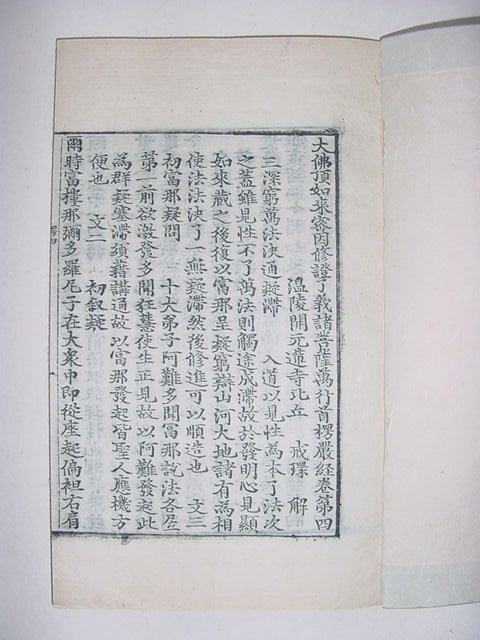 大佛頂如來密因修證了義諸菩薩萬行首楞嚴經卷第四
溫陵開元蓮寺比丘 戒環 解
三深窮萬法決通疑滯 入道以見性爲本了法次
之蓋雖見性不了萬法則觸途成滯故於發明心見顯
如來藏之後復以富那呈疑窮辯山河大地諸有爲相
使法法決了一無疑滯然後修進可以順造也 文三
初富那疑問 十大弟子阿難多聞富那說法各居
第一前欲激發多聞狂慧使生正見故以阿難發起此
爲群疑塞滯須藉講通故以富那發起皆聖人應機方
便也 文二 初叙疑
爾時富樓那彌多羅尼子在大衆中即從座起偏袒右肩